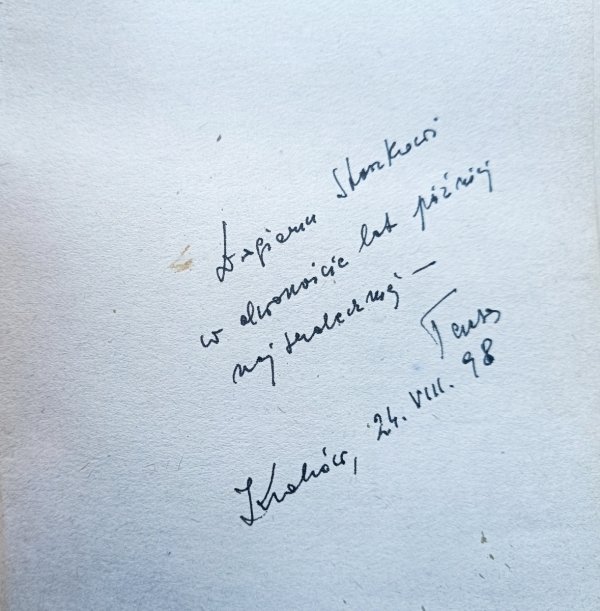 Drogiemu Staszkowi
w dwanaście lat później
najserdeczniej —
Kraków, 24. VIII. 98